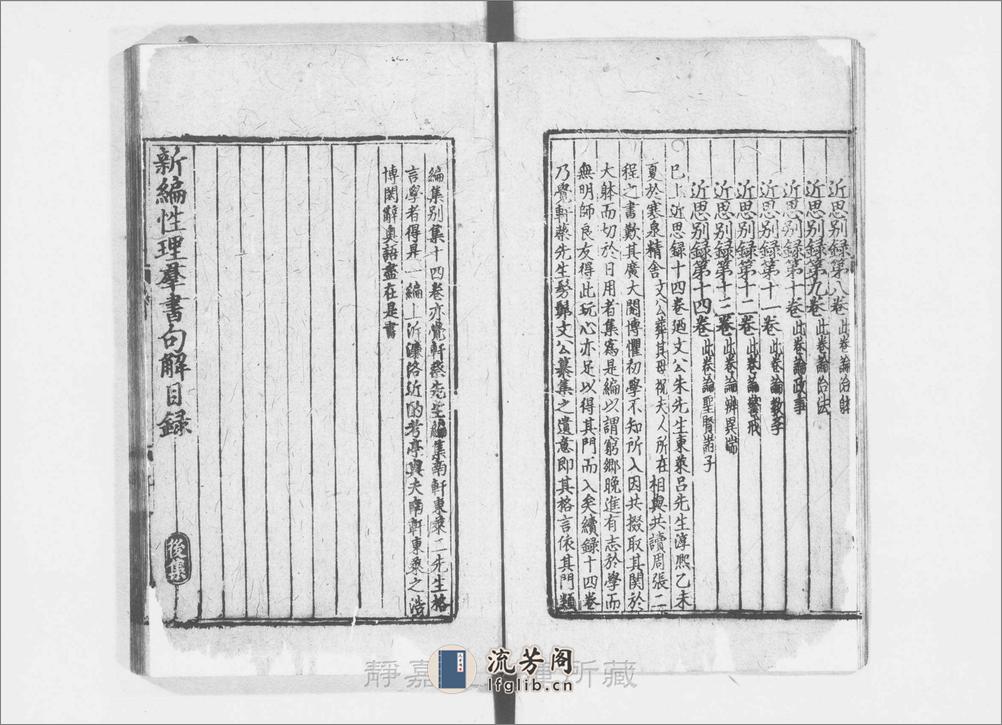 近思别録第八卷 此卷論治體
近思别録第九卷 此卷論治法
近思别録第十卷 此卷論政事
近思别録第十一卷 此卷論教學
近思别録第十二卷 此卷論警戒
近思别録第十三卷 此卷論辨異端
近思别録第十四卷 此卷論聖賢諸子
已上近思録十四卷廼文公朱先生東萊吕先生淳熙乙未
夏於寒泉精舍文公葬其母祝夫人所在相與共讀周張二
程之書歎其廣大閎博懼初學不知所入因共掇取其関於
大躰而切於日用者集爲是編以謂窮鄉晚進有志於學而
無明師良友得此玩心亦足以得其門而入矣續録十四卷
乃覺軒蔡先生髣髴文公纂集之遺意即其格言依其門類
編集别集十四卷亦覺軒蔡先生編集南軒東萊二先生格
言學者得是一編上泝濂洛近的考亭與夫南軒東萊之浩
博閎辭奥語盡在是書
新編性理羣書句解目録
後集
靜嘉 所藏
流芳阁
lfglib.cn